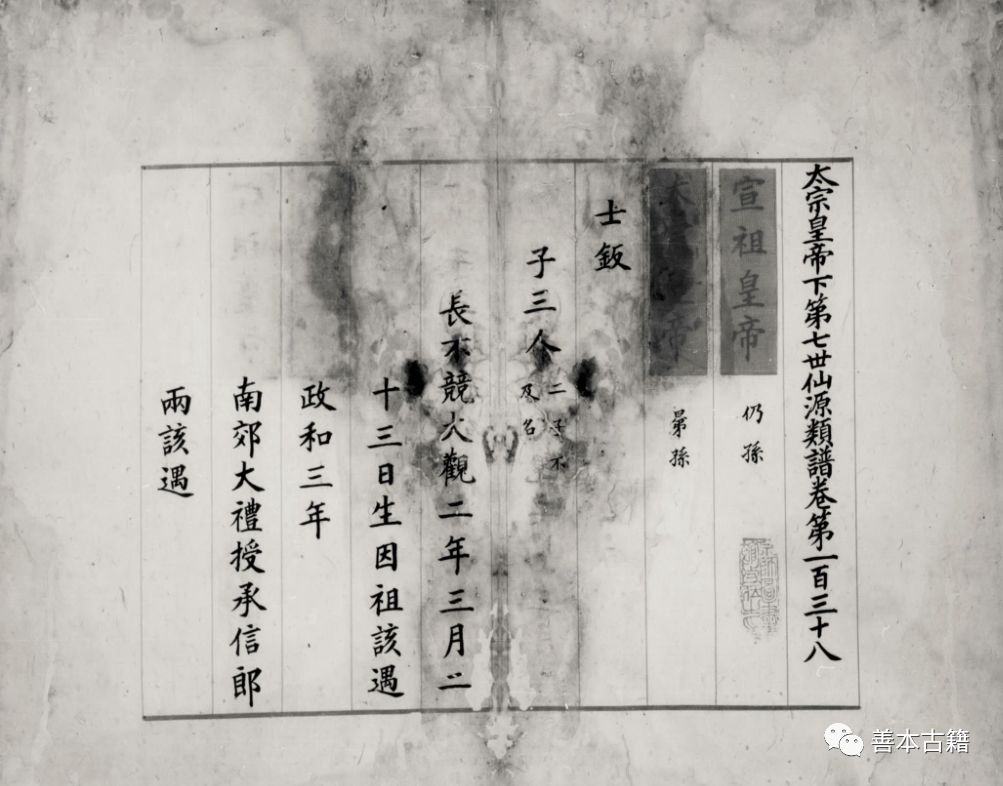 太宗皇帝下第七世仙源類譜卷第一百三十八
宣祖皇帝 仍孫
太宗皇帝 曍孫
士鈑
子三人 二子不及名
長不競大觀二年三月二
十三日生因祖該遇
政和三年
南郊大禮授承信郎
兩該遇
善本古籍